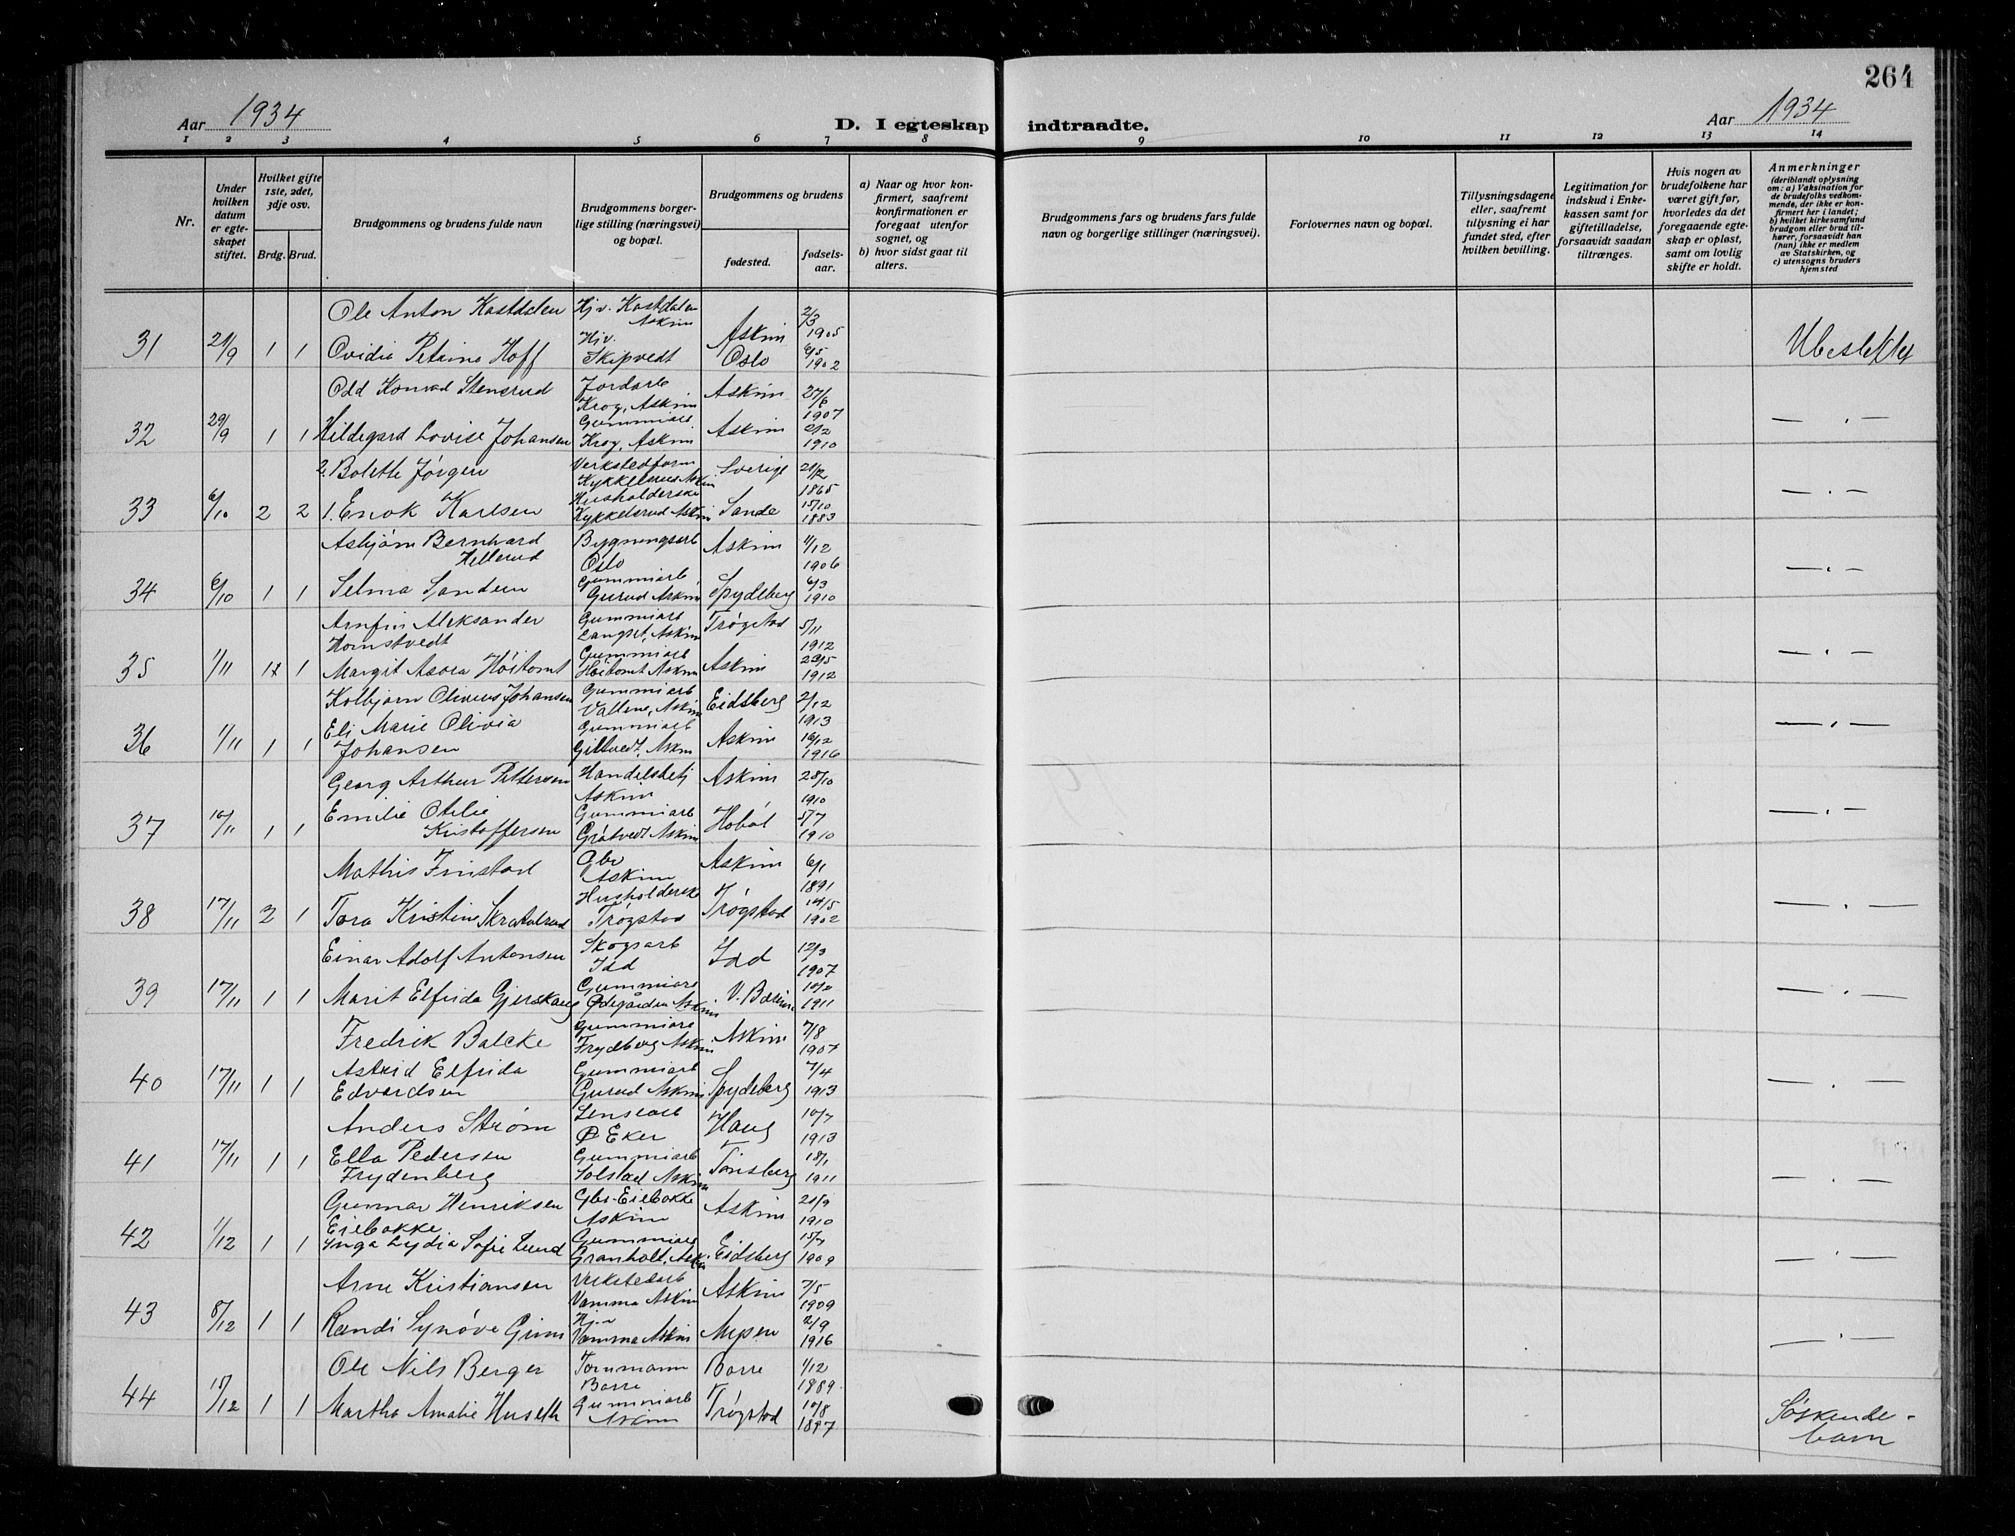 264
Aar 1934
D. I egteskap indtraadte.
Aar 1934
1 2 3 4 5 6 7 8 9 10 11 12 13 14
Nr.
Under hvilken datum er egteskapet stiftet.
Hvilket gifte 1ste, 2det, 3dje osv.
Brdg. Brud.
Brudgommens og brudens fulde navn
Brudgommens borgerlige stilling (næringsvei) og bopæl.
Brudgommens og brudens
fødested.
fødselsaar.
a) Naar og hvor konfirmert, saafremt konfirmationen er foregaat utenfor sognet, og
b) hvor sidst gaat til alters.
Brudgommens fars og brudens fars fulde navn og borgerlige stillinger (næringsvei).
Forlovernes navn og bopæl.
Tillysningsdagene eller, saafremt tillysning ei har fundet sted, efter hvilken bevilling.
Legitimation for indskud i Enkekassen samt for giftetilladelse, forsaavidt saadan tiltrænges.
Hvis nogen av brudefolkene har været gift før, hvorledes da det foregaaende egteskap er opløst, samt om lovlig skifte er holdt.
Anmerkninger
(deriblandt oplysning om: a) Vaksination for de brudefolks vedkommende, der ikke er konfirmert her i landet; b) hvilket kirkesamfund brudgom eller brud tilhører, forsaavidt han (hun) ikke er medlem av Statskirken, og c) utensogns bruders hjemsted
Ole Anton Kastdalen Hjv. Kastdalen Askim Askim 2/3 1905
31 29/9 1 1 Ovidia Petrine Hoff Hjv. Skipvedt Oslo 6/5 1902 Ubeslektet
Odd Konrad Stensrud Jordarb Krog, Askim Askim 27/6 1907
32 29/9 1 1 Hildegard Lovise Johansen Gummiarb. Krog, Askim Askim 2/2 1910 — . —
2. Bolette Jørgen Verkstedform Kykkelsrud Askim Sverige 21/2 1865
33 6/10 2 2 1. Enok Karlsen Husholderske Kykkelsrud Askim Sande 15/10 1883 — . —
Asbjørn Bernhard Hellerud Bygningsarb Oslo Askim 1/12 1906
34 6/10 1 1 Selma Sandem Gummiarb Gurud Askim Spydeberg 6/3 1910 — . —
Arnfin Aleksander Homstvedt Gummiarb Langset, Askim Trøgstad 5/11 1912
35 1/11 1 1 Margit Asora Höitomt Gummiarb Höitomt Askim Askim 20/5 1912 — . —
Kolbjørn Oliverus Johansen Gummiarb Vallene, Askim Eidsberg 2/12 1913
36 1/11 1 1 Eli Marie Olivia Johansen Gummiarb Giltvedt, Askim Askim 16/12 1916 — . —
Georg Arthur Pettersen Handelsbetj Askim Askim 28/10 1910
37 10/11 1 1 Emilie Otilie Kristoffersen Gummiarb Gråtvedt Askim Hobøl 5/7 1910 — . —
Mathis Finstad Gbr Askim Askim 6/1 1891
38 17/11 2 1 Tora Kristine Skratulsrud Husholderske Trøgstad Trøgstad 14/5 1902 — . —
Einar Adolf Antonsen Skogsarb Idd Idd 12/3 1907
39 17/11 1 1 Marit Elfrida Gjerskaug Gummiarb Ødegården Askim V. Bærum 10/2 1911 — . —
Fredrik Balcke Gummiarb Frydberg Askim Askim 7/8 1907
40 17/11 1 1 Astrid Elfrida Edvardsen Gummiarb Gurud Askim Spydeberg 7/4 1913 — . —
Anders Strøm Lensearb Ø Eker Haug 10/7 1913
41 17/11 1 1 Ella Pedersen Frydenberg Gummiarb Solstad Askim Tønsberg 18/1 1911 — . —
Gunnar Henriksen Eiebakke Gbr-Eiebakke Askim Askim 21/9 1910
42 1/12 1 1 Ynga Lydia Sofie Lund Gummiarb Granholt, Askim Eidsberg 15/7 1909 — . —
Arne Kristiansen Verkstedarb Vamma Askim Askim 7/5 1909
43 8/12 1 1 Randi Synøve Grim Hj.v Vamma Askim Mysen 2/9 1916 — . —
Ole Nils Berger Tornmann Borre Borre 1/12 1889
44 15/12 1 1 Martha Amalie Huseth Gummiarb Askim Trøgstad 10/8 1897 Søskende-barn